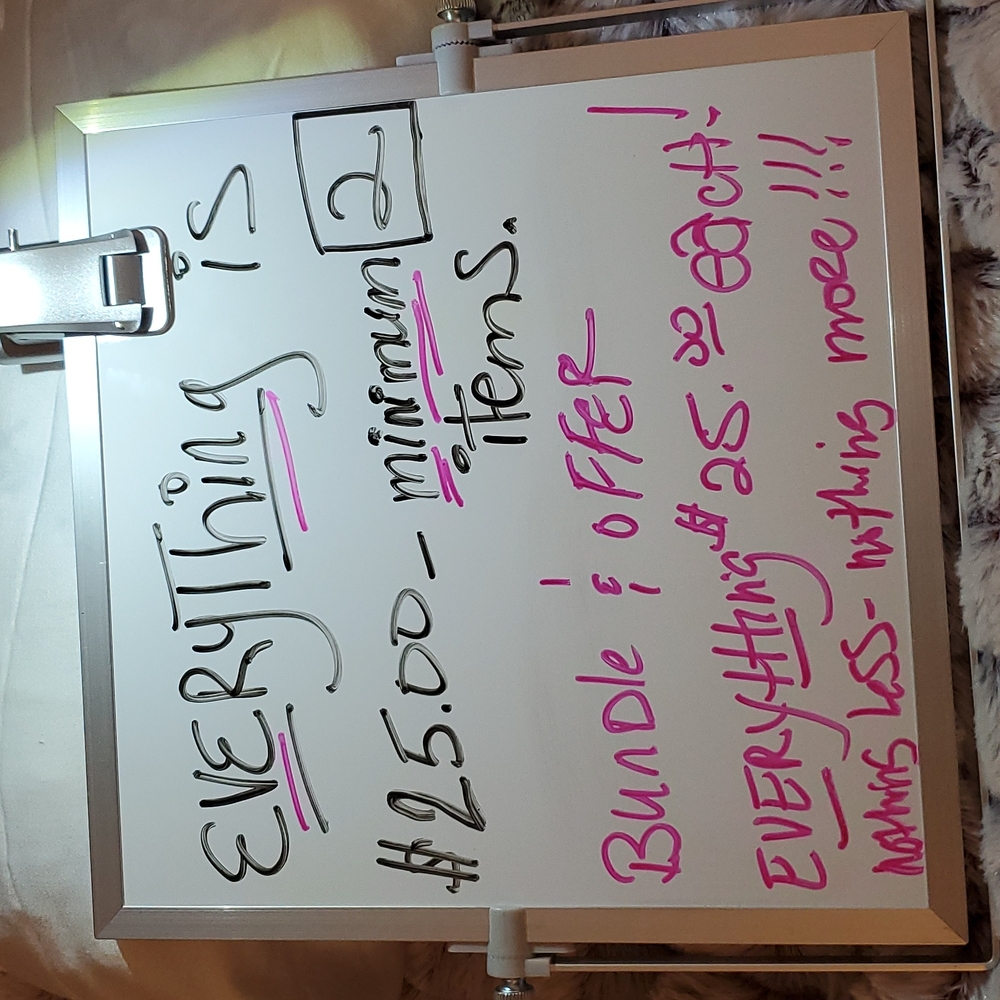 EVERYThing is
$25.00 - minimum 2
items.
BunDle & oFFER
EVERYtHing $25.00 EaCH!
nothing LeSS - nothing more!!!